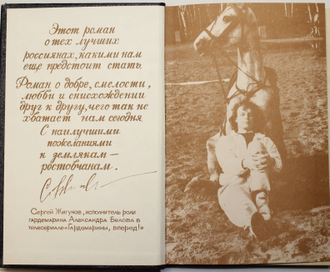 Этот роман
о тех лучших
россиянах, какими нам
еще предстоит стать.
Роман о добре, смелости,
любви и снисхождении
друг к другу, чего так не
хватает нам сегодня.
С наилучшими
пожеланиями
к землякам —
ростовчанам.
Сергей Жигунов, исполнитель роли
гардемарина Александра Белова в
телесериале «Гардемарины, вперед!»